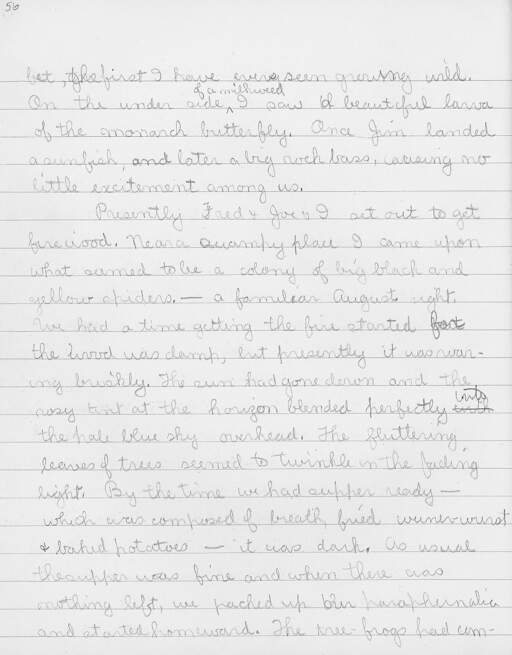 56
bet, the first I have ever seen growing wild.
of a milkweed
On the under side, I saw a beautiful larva
of the monarch butterfly. Once Jim landed
a sunfish, and later a big rock bass, causing no
little excitement among us.
Presently Fred & Joe & I set out to get
firewood. Near a swampy place I came upon
what seemed to be a colony of big black and
yellow spiders. — a familiar August sight.
We had a time getting the fire started
the wood was damp, but presently it was roar-
ing briskly. The sun had gone down and the
rosy tint at the horizon blended perfectly into
the pale blue sky overhead. The fluttering
leaves of trees seemed to twinkle in the fading
light. By the time we had supper ready —
which was composed of fried wiener-wurst
& baked potatoes — it was dark. As usual
the supper was fine and when there was
nothing left, we packed up our paraphernalia
and started homeward. The tree-frogs had com-